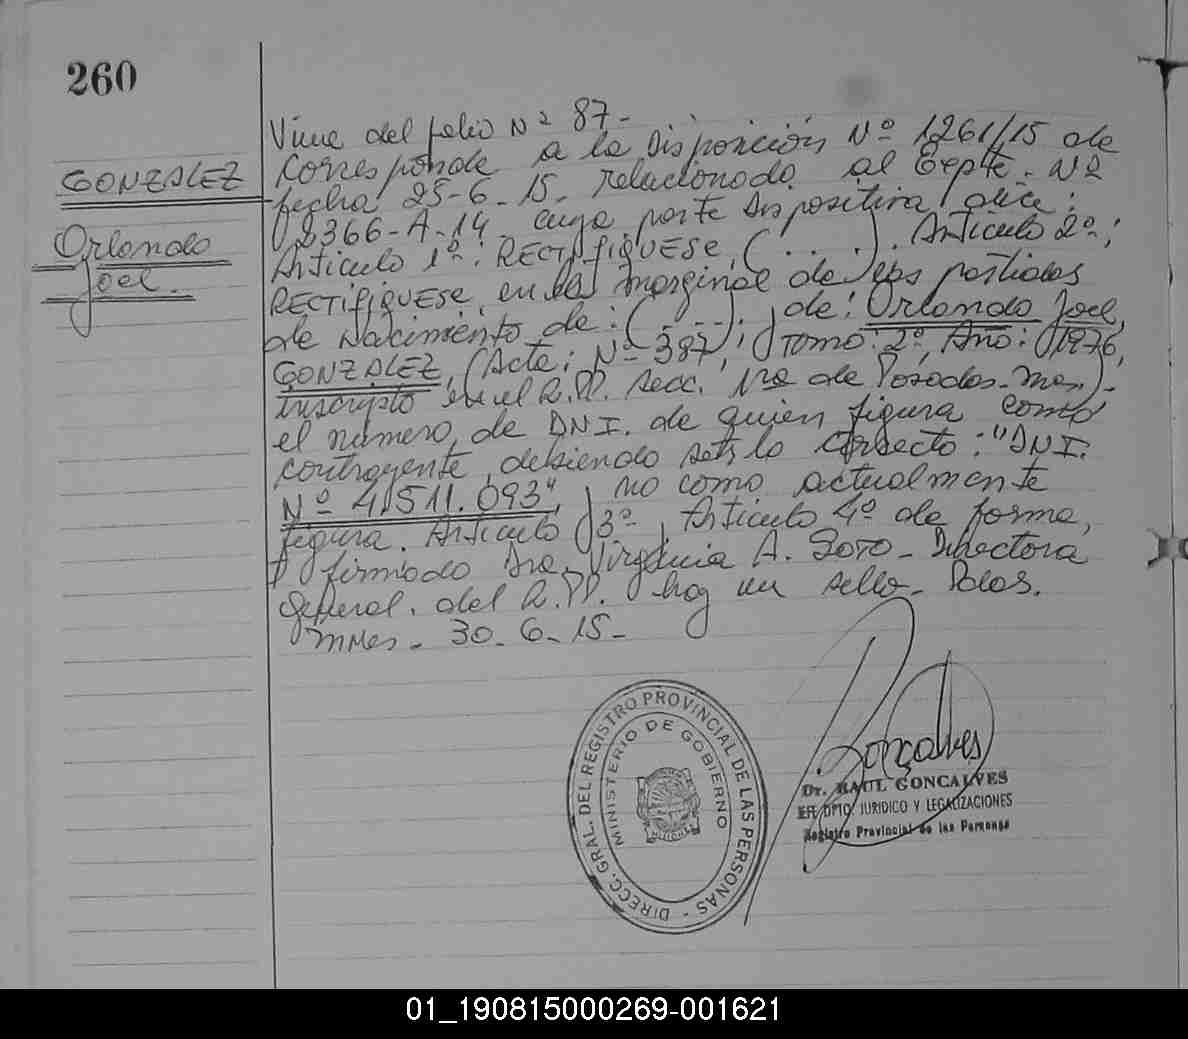 260
GONZALEZ
Orlando
Joel.
Viene del folio Nº 87-
Corresponde a la Disposición Nº 1261/15 de
fecha 25-6-15- relacionado al Expte. Nº
2366-A-14 cuya parte dispositiva dice:
Artículo 1º: RECTIFIQUESE, (.....). Artículo 2º:
RECTIFIQUESE, en la marginal de las partidas
de Nacimiento de: (-.--.); de: Orlando Joel,
GONZALEZ, (Acta: Nº 387, Tomo: 2º, Año: 1976,
inscripto en el R.P. Secc. 1ra de Posadas-Mnes)-
el número de DNI. de quien figura como
contrayente, debiendo serlo correcto: "DNI.
Nº 4.511.093", no como actualmente
figura. Artículo 3º, Artículo 4º de forma,
firmado Dra. Virginia A. Soto- Directora
General. del R.P.P. hay un sello- Pdas.
Mnes- 30-6-15-
DIRECC. GRAL. DEL REGISTRO PROVINCIAL DE LAS PERSONAS -
MINISTERIO DE GOBIERNO
MISIONES
Gonçalves
Dr. RAUL GONCALVES
JEFE DPTO. JURIDICO Y LEGALIZACIONES
Registro Provincial de las Personas
01_190815000269-001621